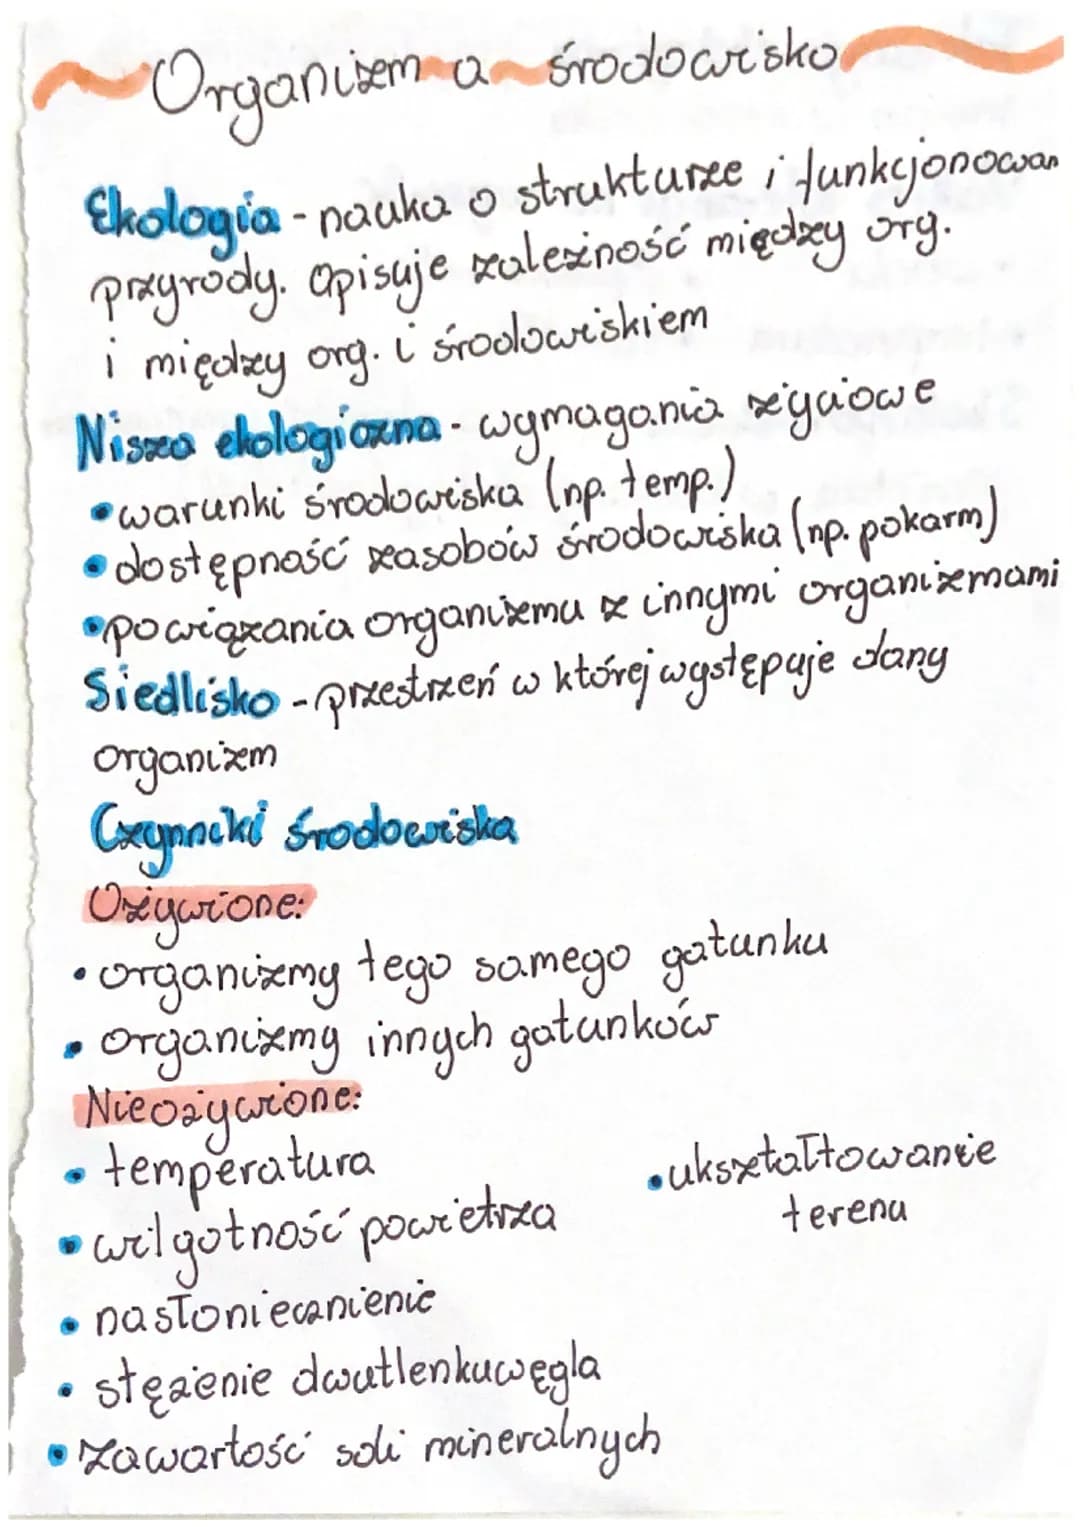 Organizm a środowisko
Ekologia - nauka o strukturze i funkcjonowan
przyrody. Opisuje zależność między org.
i między org. i środowiskiem
Nisza ekologiczna - wymagania życiowe
• warunki środowiska (np. temp.)
• dostępność zasobów środowiska (np. pokarm)
• powiązania organizmu z innymi organizmami
Siedlisko - przestrzeń w której występuje dany
organizm
Czynniki środowiska
Ożywione:
• organizmy tego samego gatunku
• organizmy innych gatunków
Nieożywione:
• temperatura
• wilgotność powietrza
• nasłonecznienie
• stężenie dwutlenku węgla
• zawartość soli mineralnych
• ukształtowanie
terenu